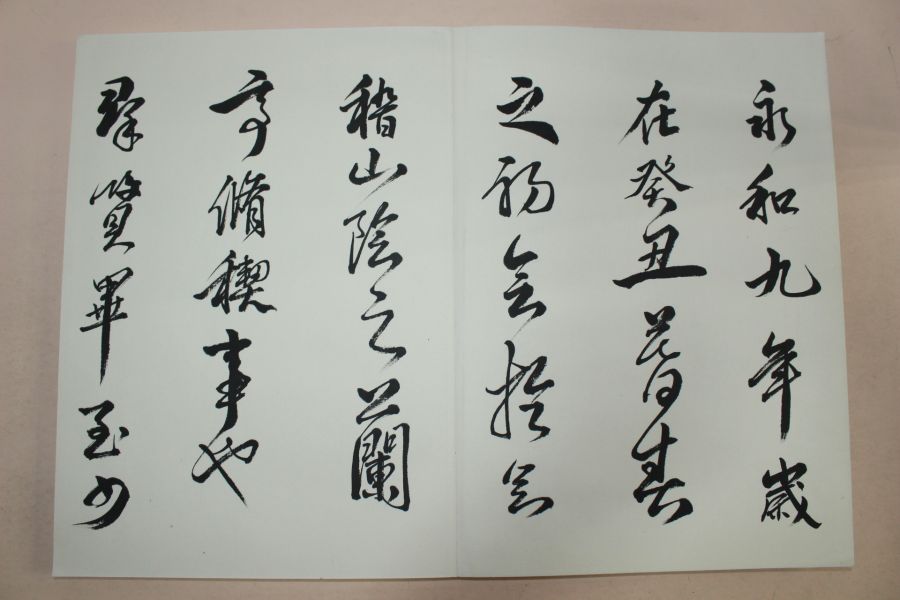 永和九年歲
在癸丑暮春
之初會扵會
稽山陰之蘭
亭脩稧事也
羣賢畢至少